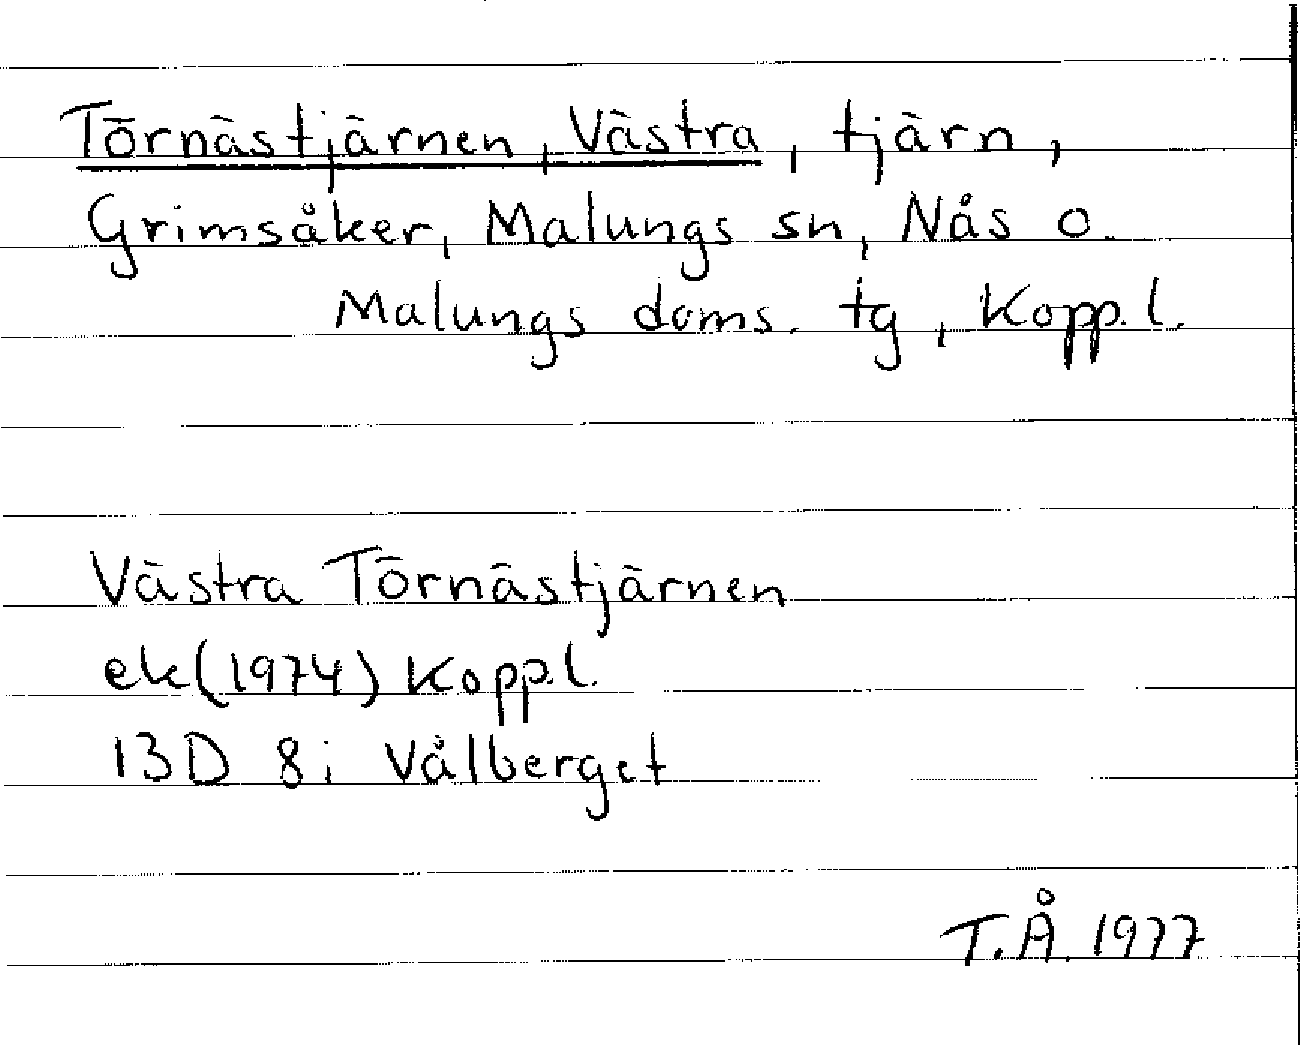 Törnästjärnen, Västra, tjärn,
Grimsåker, Malungs sn, Nås o.
Malungs doms. tg, Kopp.l.
Västra Törnästjärnen
ek(1974) Kopp.l.
13D 8i Vålberget
T.Å. 1977